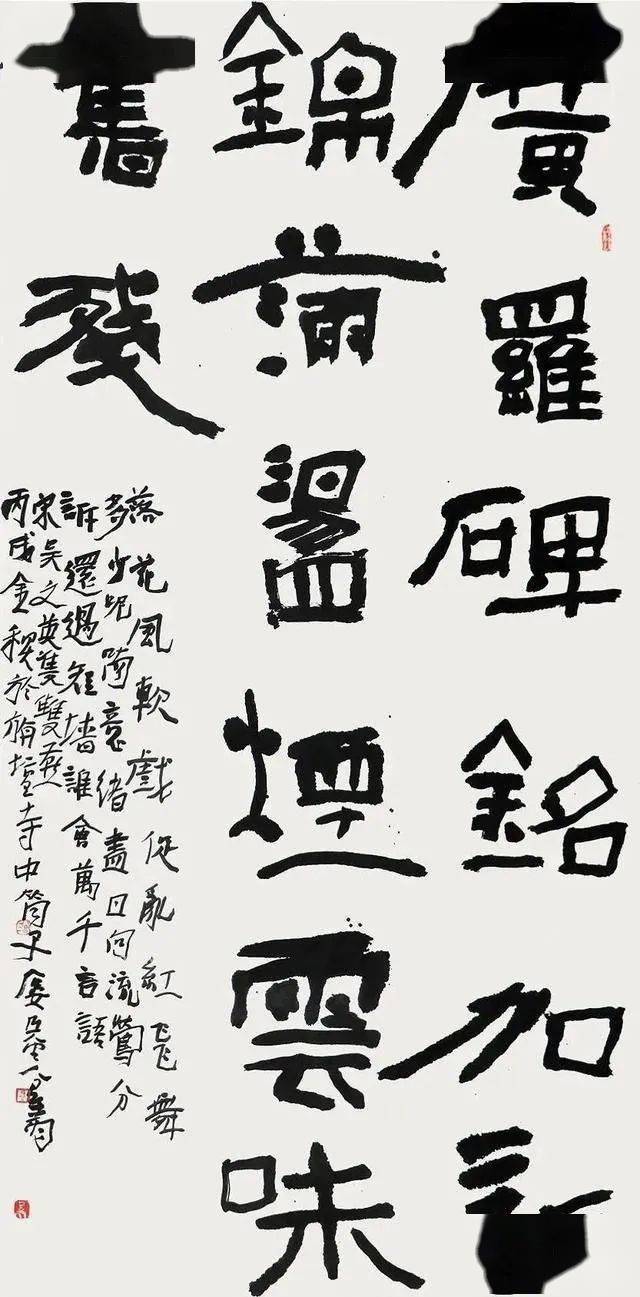 廣羅碑銘加
錦滿盪煙雲味
舊殘
落花風軟戲促亂紅飛舞
多少呢喃意緒盡日向流鶯分
訴還過短牆誰會萬千言語
宋吳文英雙雙燕
丙戌金秋於寺中